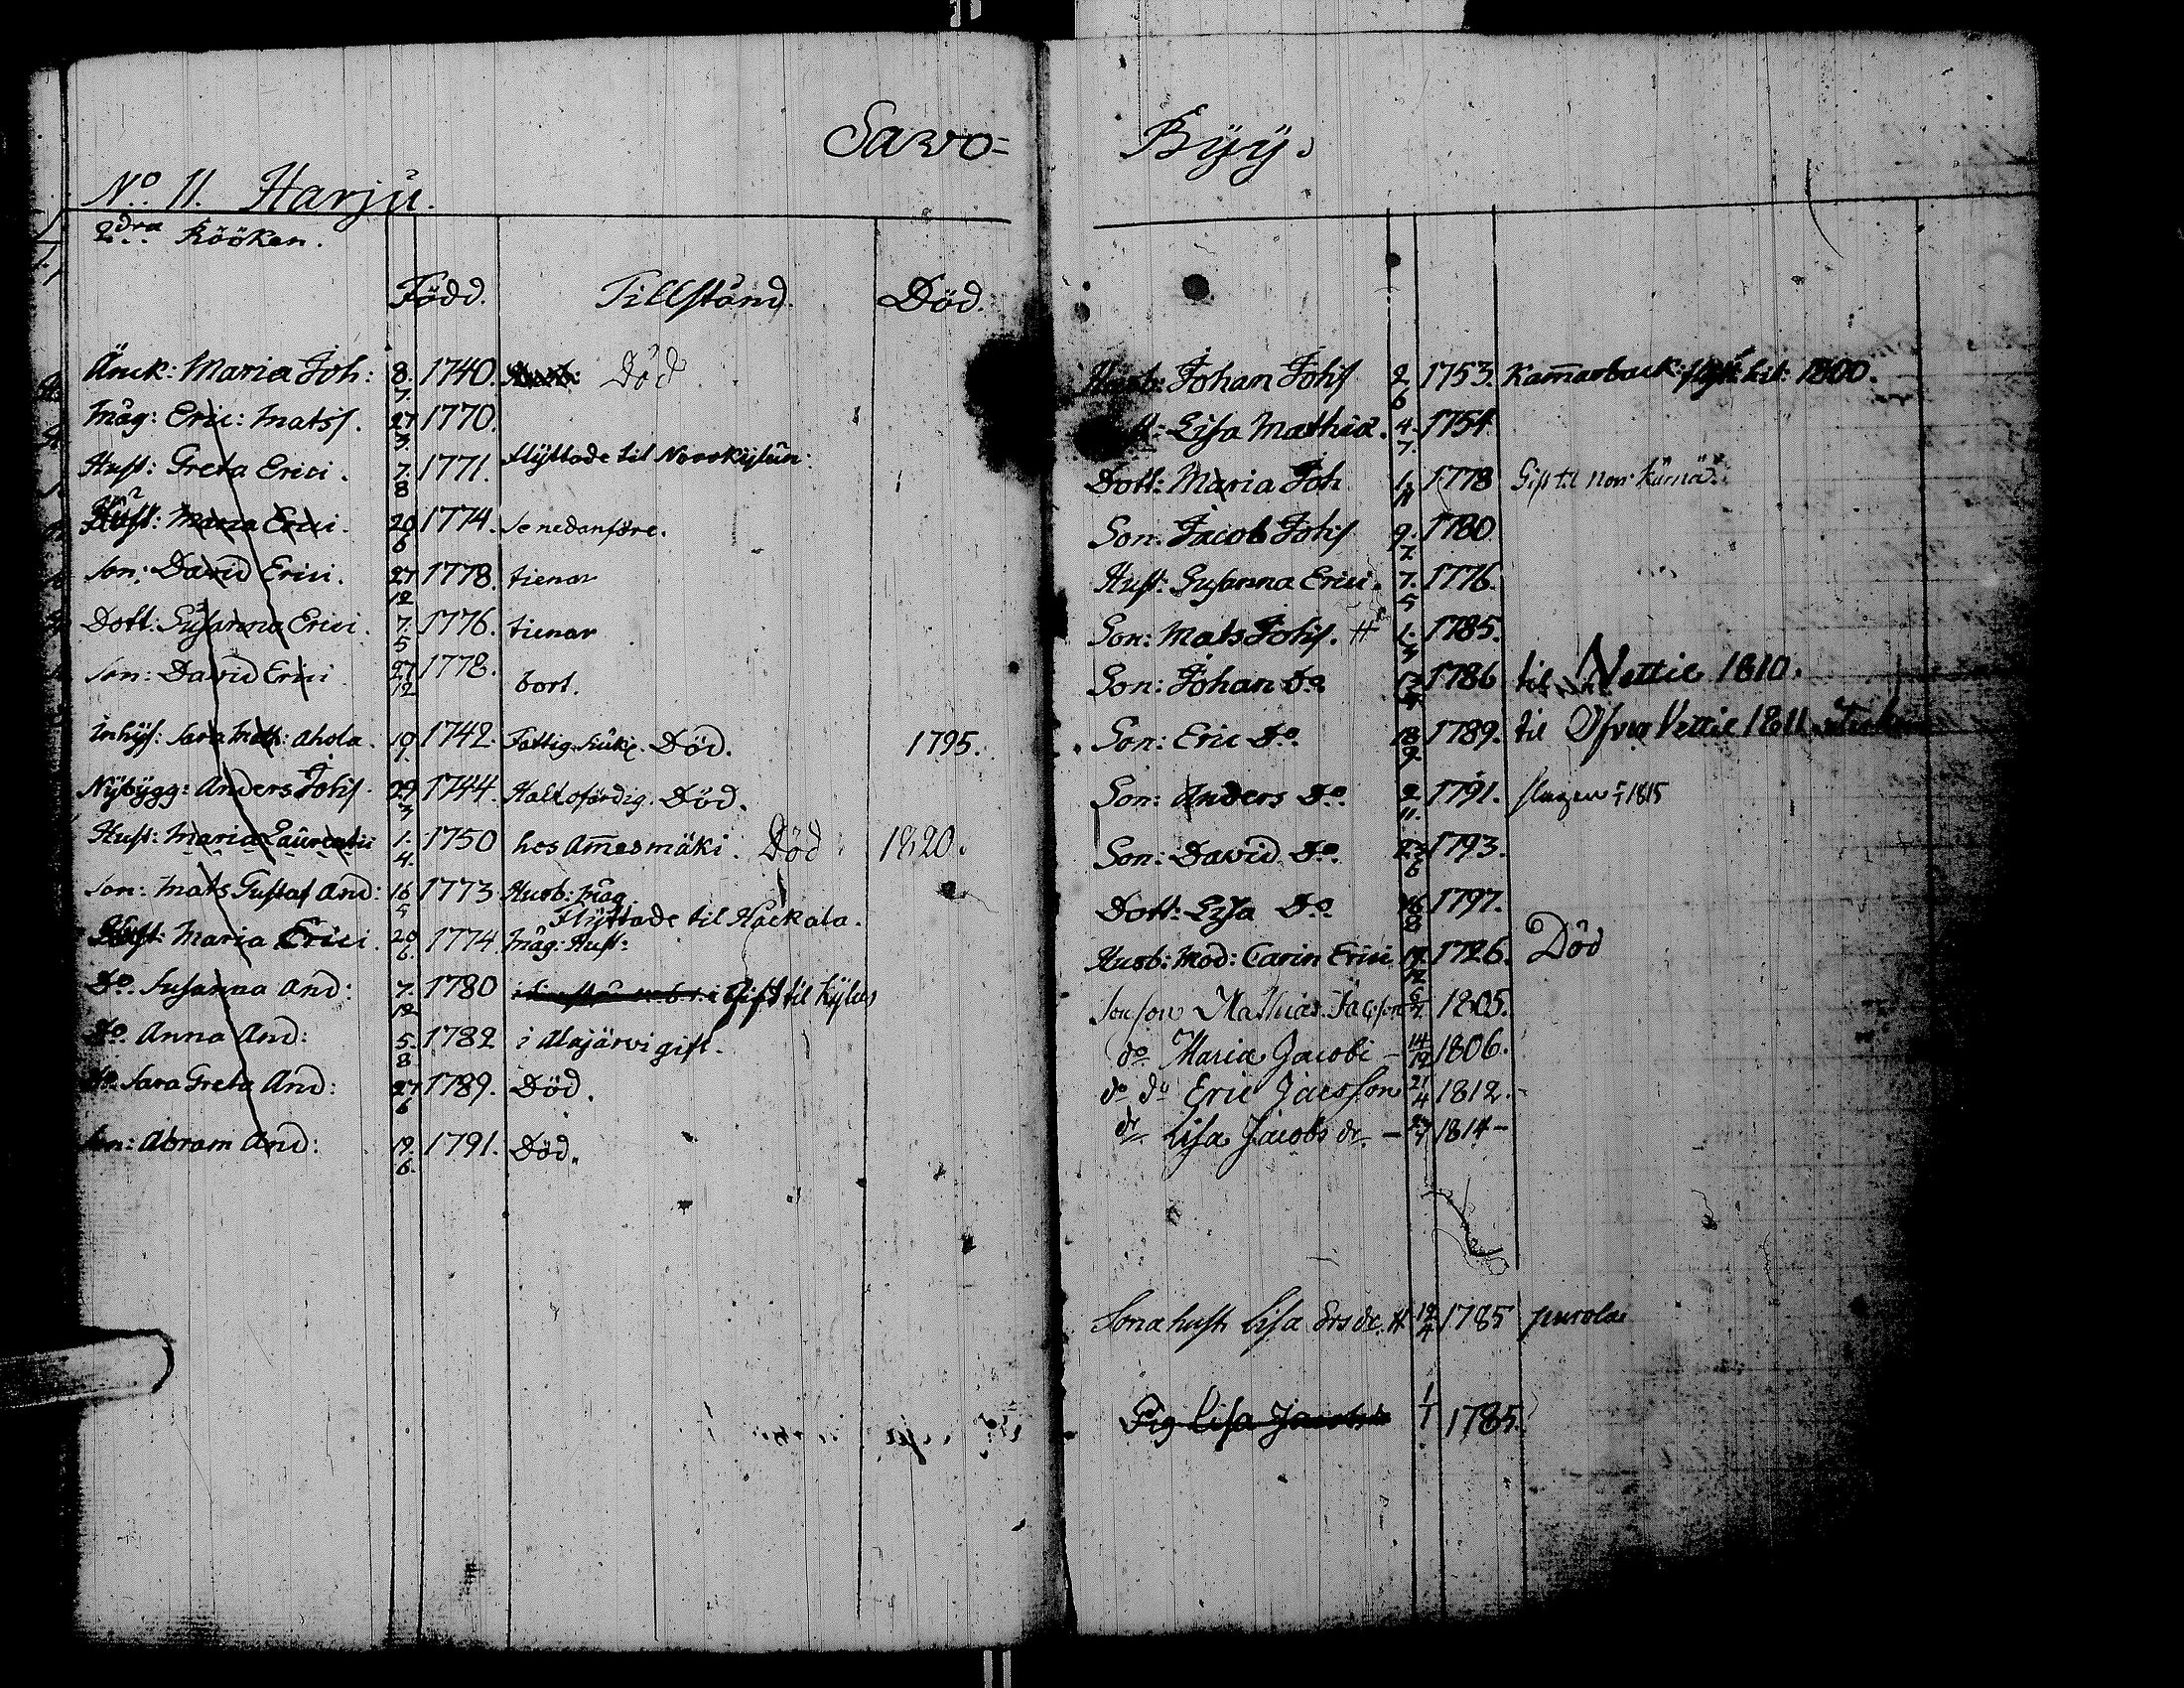 Savo=
No. 11. Harju.
2dra Rööken.
Född. Tillstånd. Död.
Änck: Maria Joh: 8/7 1740. Död
Måg: Eric: Matsſ. 27/3 1770.
Huſt: Greta Erici. 7/8 1771. Flyttade til
Huſt: Maria Erici. 20/6 1774. Se nedanföre.
Son: David Erici. 27/12 1778. tienar
Dott: Suſanna Erici. 7/5 1776. tienar
Son: David Erici 27/12 1778. bort.
Inhyſ: Sara Math: Ahola. 19/9 1742. Fattig. Död. 1795.
Nybygg: Anders Johſ. 29/3 1744. Halt ofärdig. Död.
Huſt: Maria Laurentii 1/4 1750 hos Am̄esmäki. Död 1820.
Son: Mats Guſtaf And: 16/5 1773 Husb: Måg
Flyttade til Hackala.
Huſt: Maria Erici. 20/6 1774 Måg: Huſt:
Do. Suſanna And: 7/12 1780 Gift til
Do. Anna And: 5/8 1782 i Alajärvi gift.
Do. Sara Greta And: 27/6 1789. Död.
Son: Abram And: 19/6 1791. Död.
Byy.
Husb: Johan Johſ 2/6 1753. Kam̄arback: 1800.
Lisa Mathiæ. 4/7 1754
Dott: Maria Joh 1/11 1778 Gift til
Son: Jacob Johſ 9/7 1780
Huſt: Suſanna Erici. 7/5 1776.
Son: Mats Johſ. # 1/3 1785.
Son: Johan Do. 1786 til Vettie 1810.
Son: Eric Do. 18/9 1789. til Öfver Vettie 1811
Son: Anders Do. 2/11 1791. 1815
Son: David Do. 23/6 1793.
Dott: Lisa Do. 1797.
Husb: Mod: Carin Erici 1726. Död
Sonſon Mathias 1805.
do Maria Jacobi - 14/12 1806.
do do Eric Jacsſon 21/4 1812.-
do Liſa Jacobs dr. - 1814-
Sonahuſt Liſa Ers dr. # 19/4 1785 purola
Pig Liſa 1/1 1785.